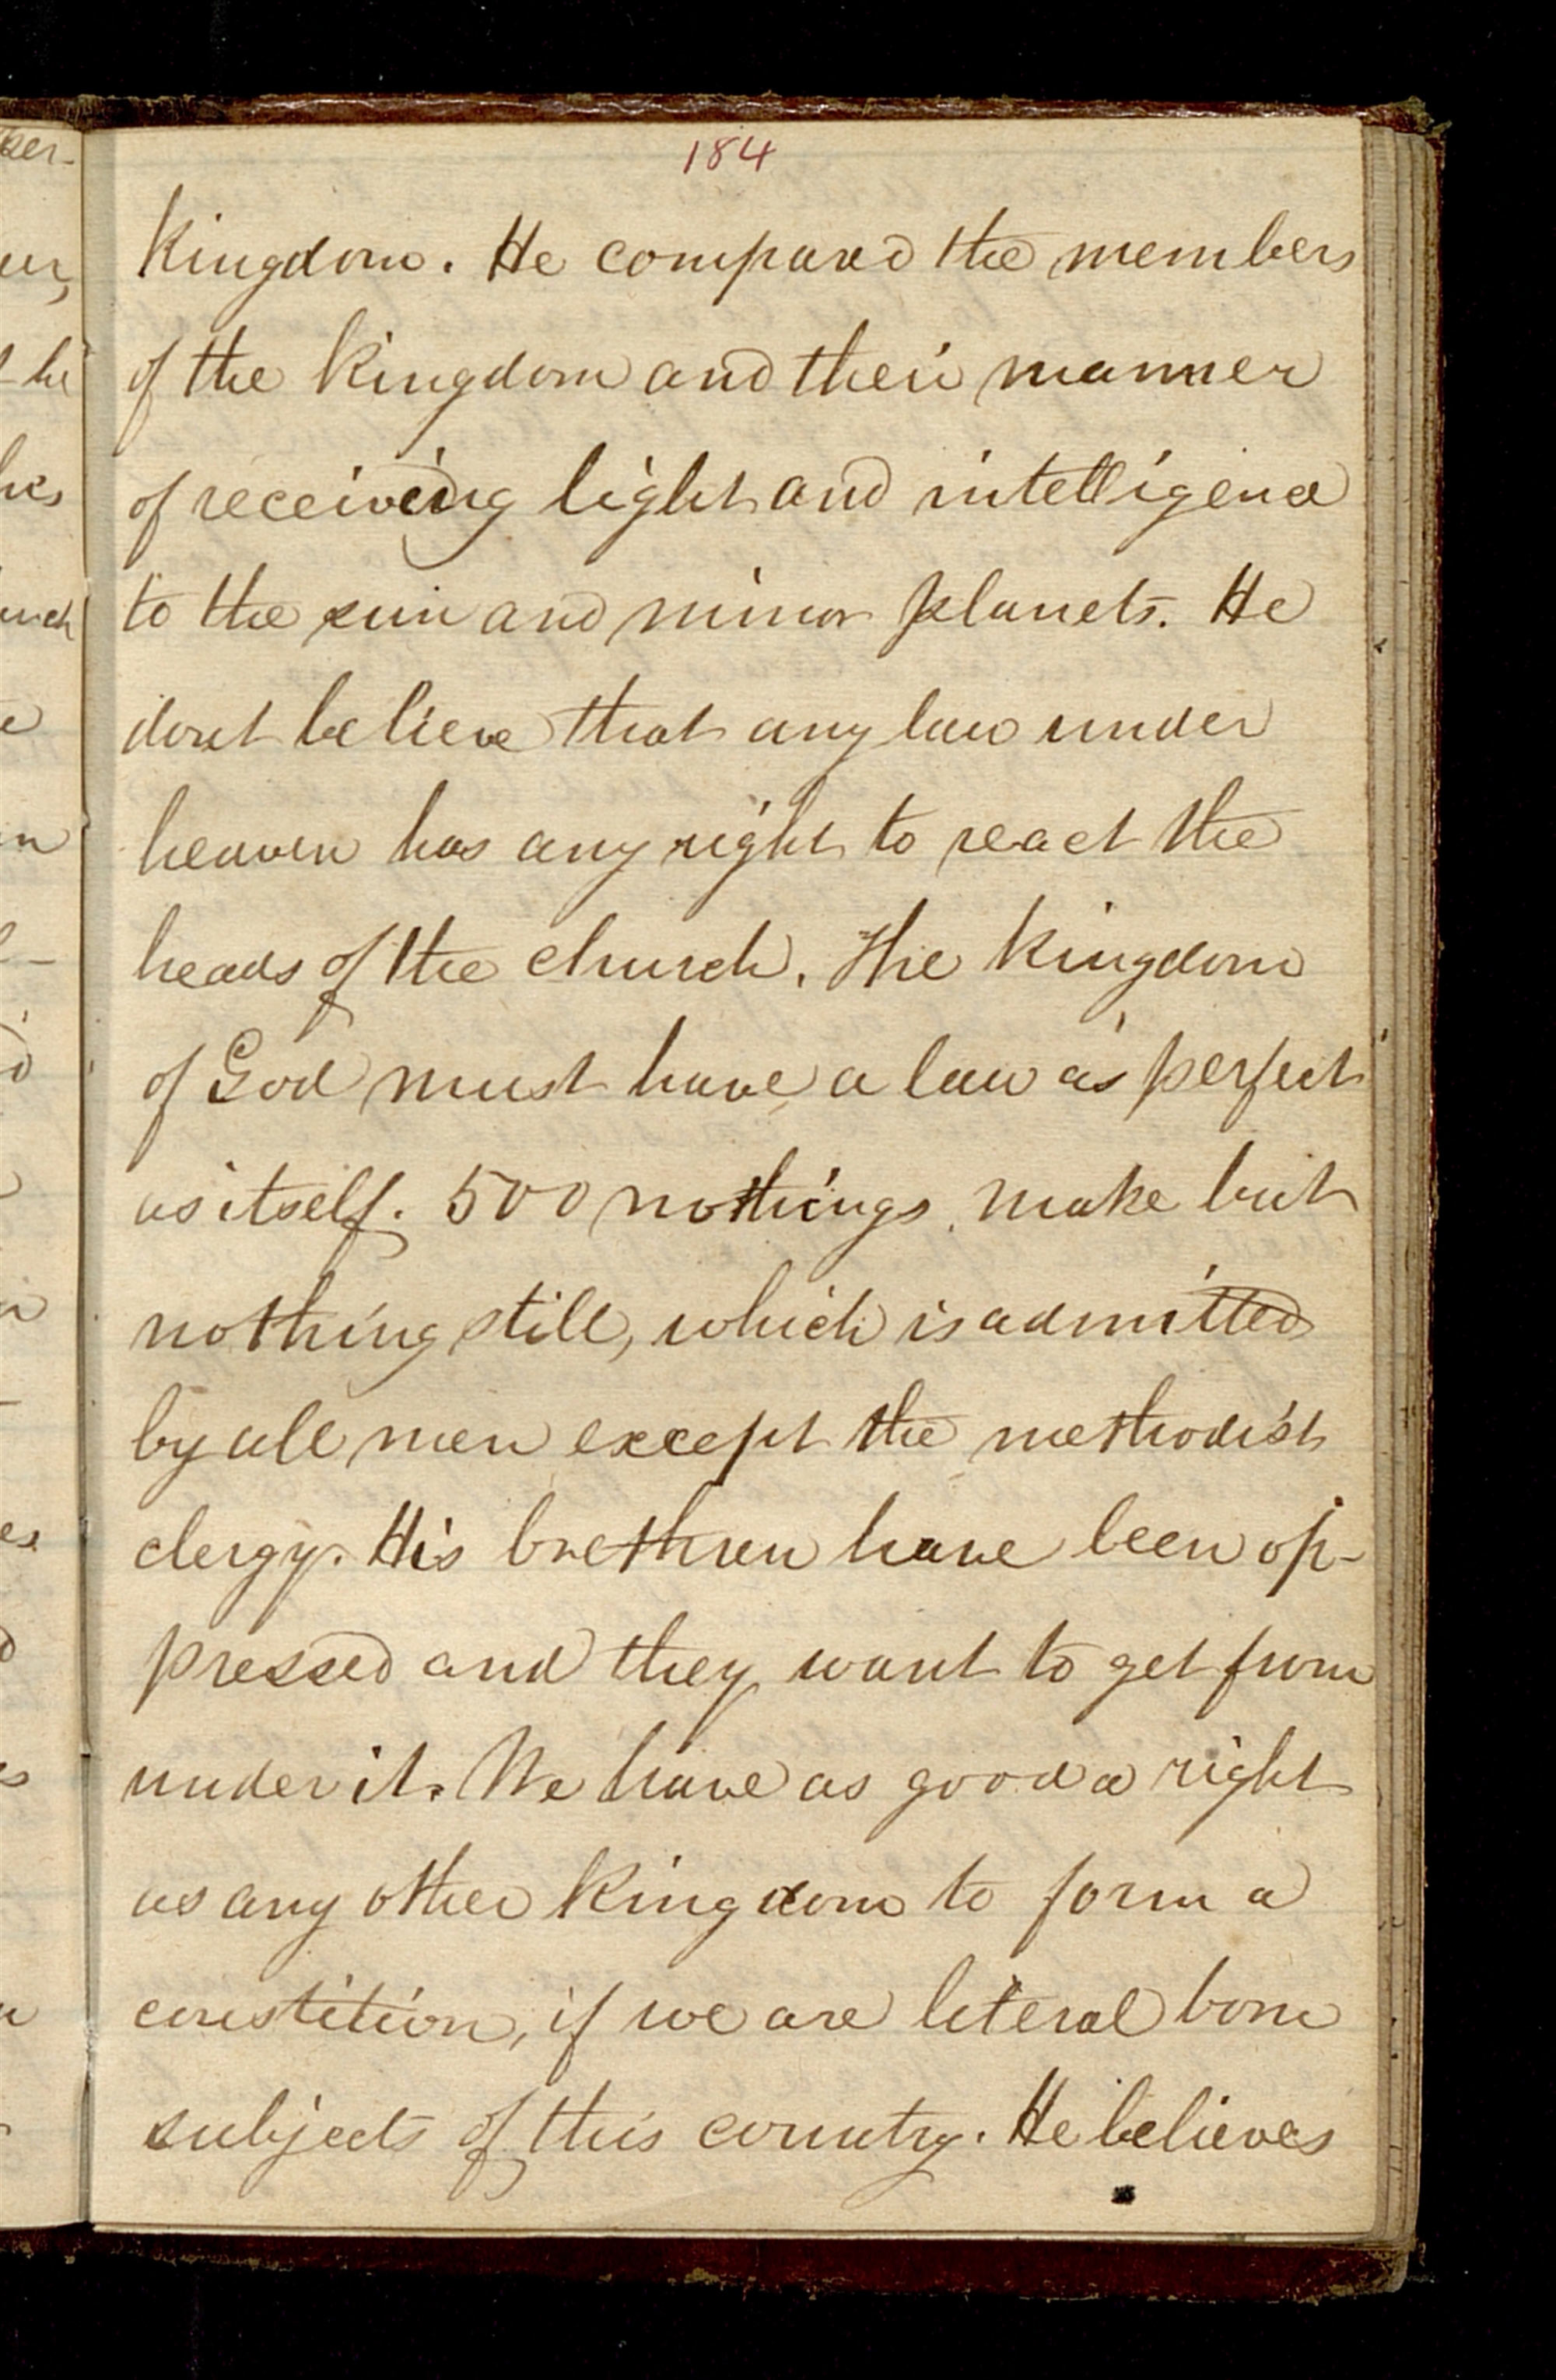 184
kingdom. He compared the members
of the kingdom and their manner
of receiving light and intelligence
to the sun and minor planets. He
dont believe that any law under
heaven has any right to react the
heads of the church. The kingdom
of God must have a law as perfect
as itself. 500 nothings make but
nothing still, which is admitted
by all men except the methodist
clergy. His brethren have been op-
pressed and they want to get from
under it. We have as good a right
as any other kingdom to form a
constition, if we are literal born
subjects of this country. He believes